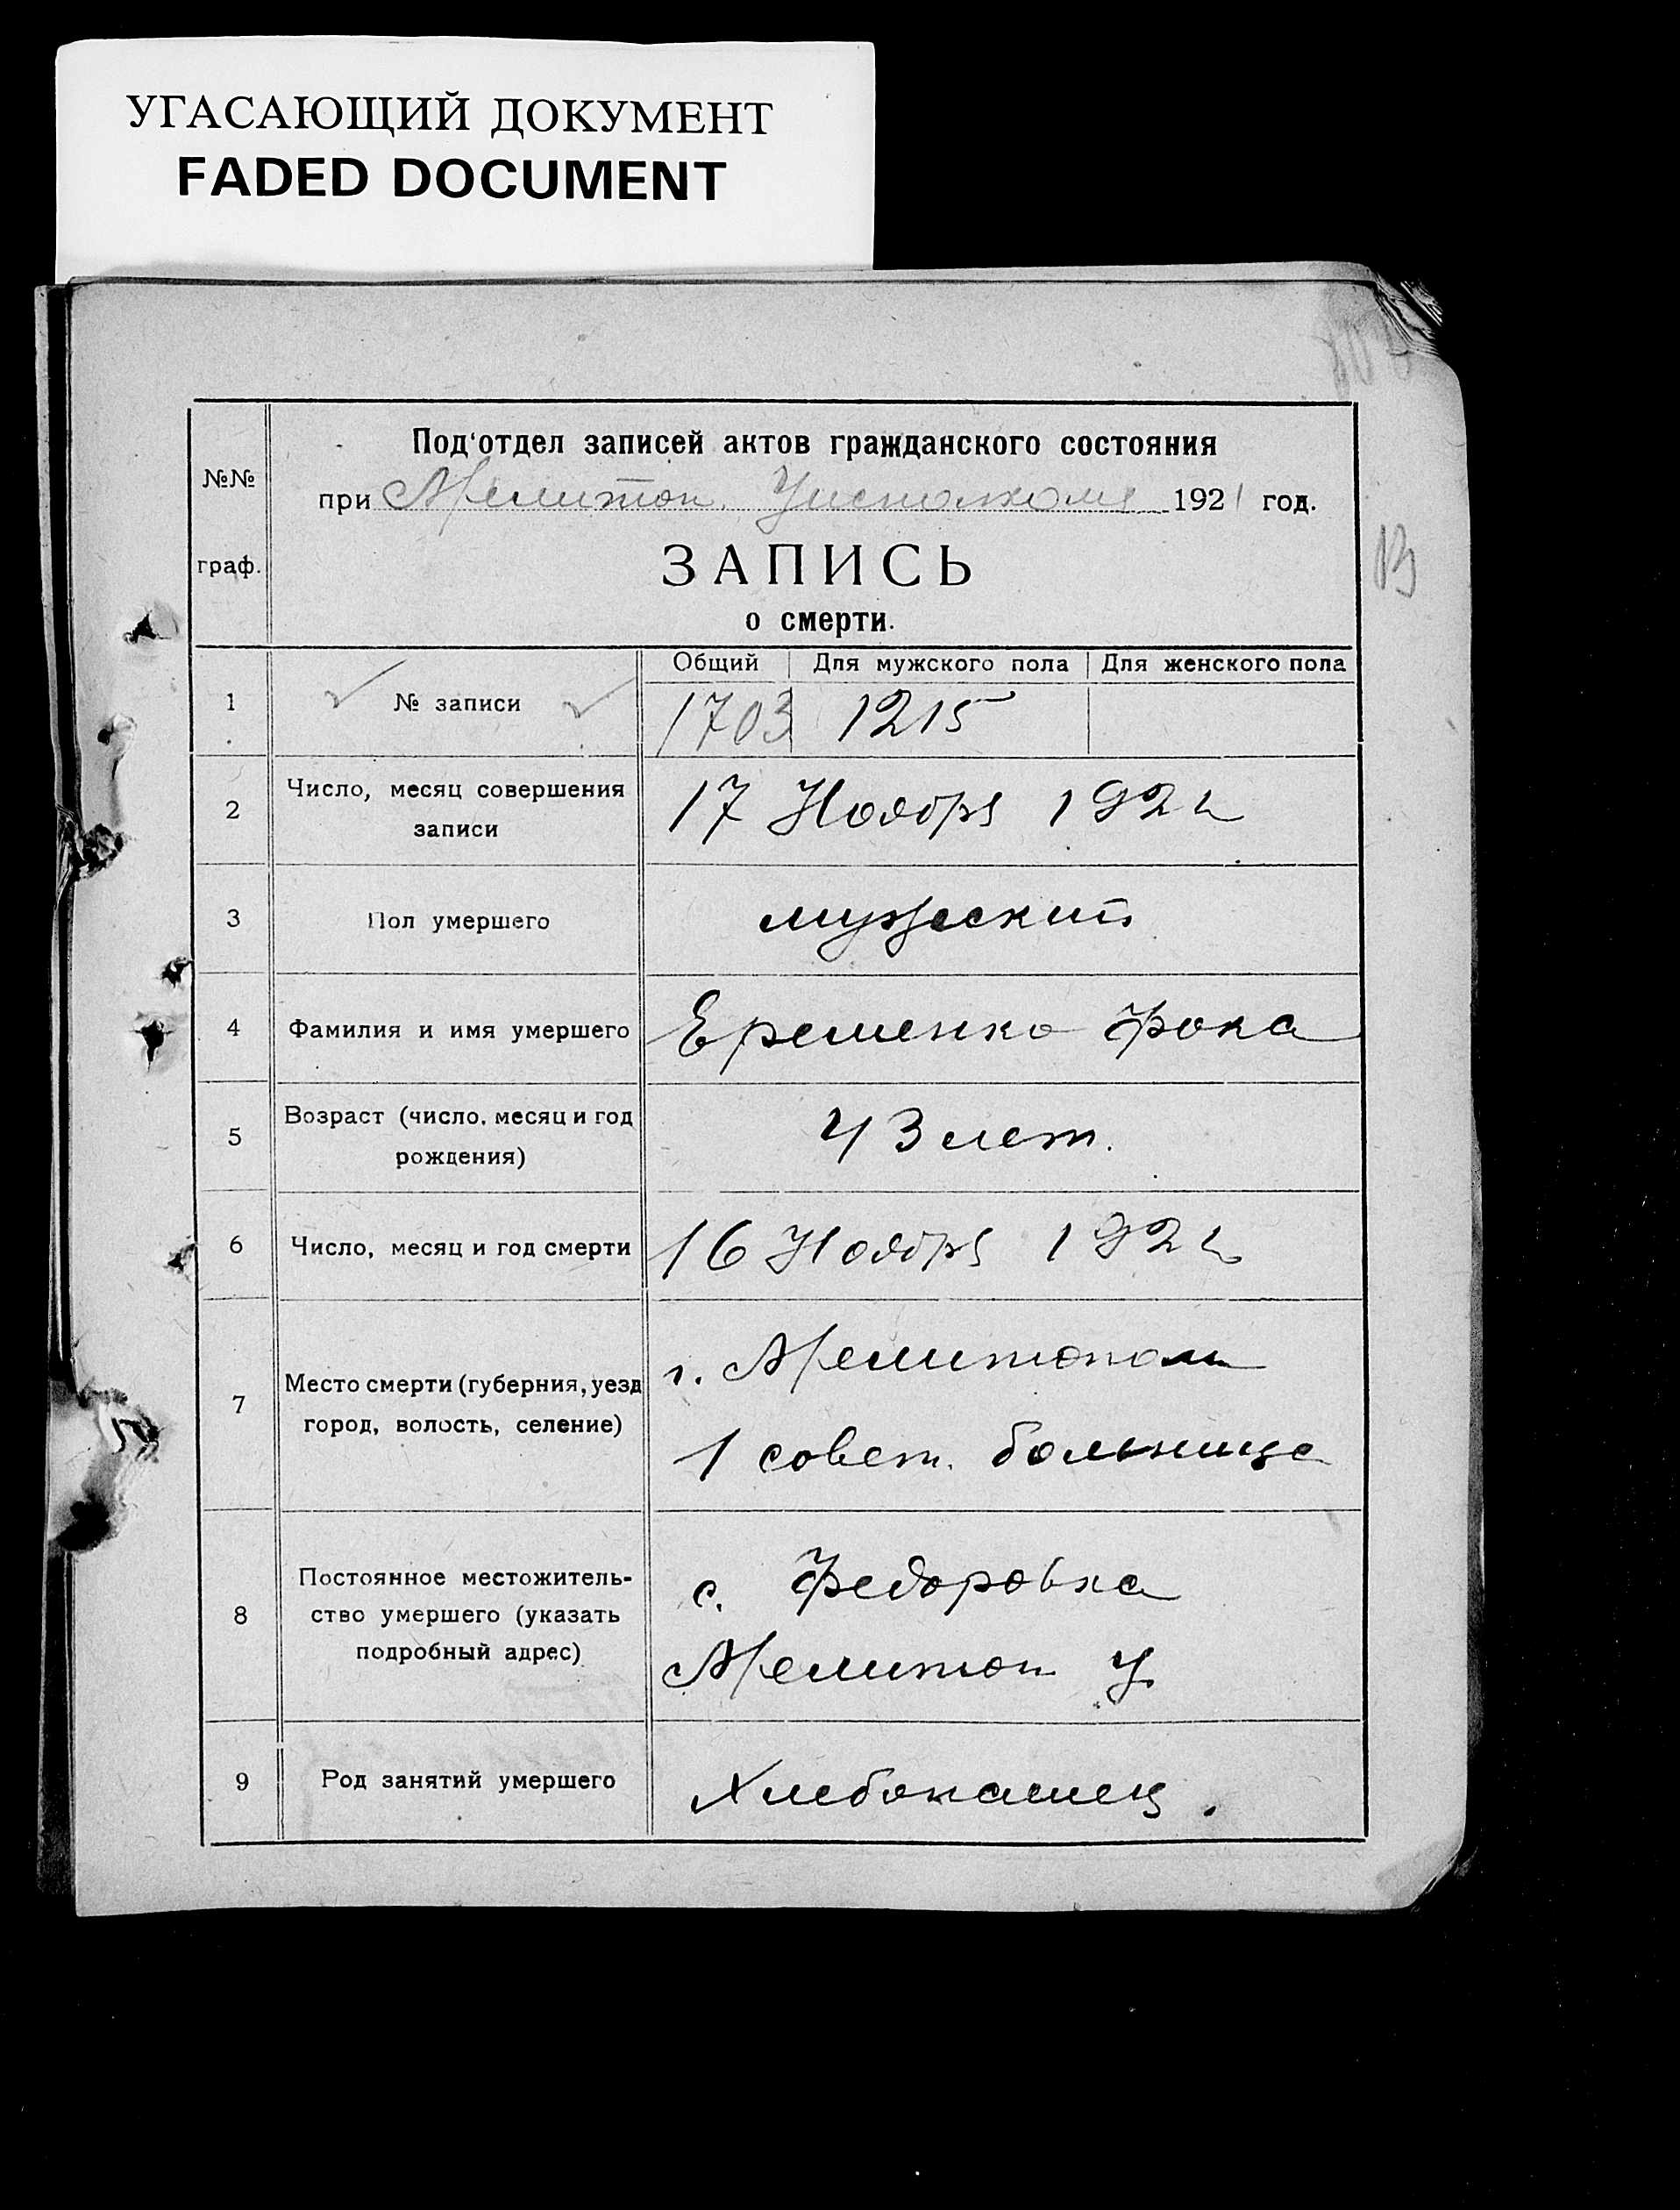 УГАСАЮЩИЙ ДОКУМЕНТ
FADED DOCUMENT
№№
граф.
Под'отдел записей актов гражданского состояния
при Мелитоп. Уисполкоме 1921 год.
ЗАПИСЬ
о смерти.
Общий Для мужского пола Для женского пола
1 № записи 1703 1215
2 Число, месяц совершения записи 17 Ноября 1921
3 Пол умершего мужеский
4 Фамилия и имя умершего Еременко Фока
5 Возраст (число, месяц и год рождения) 43 лет.
6 Число, месяц и год смерти 16 Ноября 1921
7 Место смерти (губерния, уезд город, волость, селение) г. Мелитополь
1 совет. больница
8 Постоянное местожитель-
ство умершего (указать
подробный адрес) с. Федоровка
Мелитоп у
9 Род занятий умершего Хлебопашец.